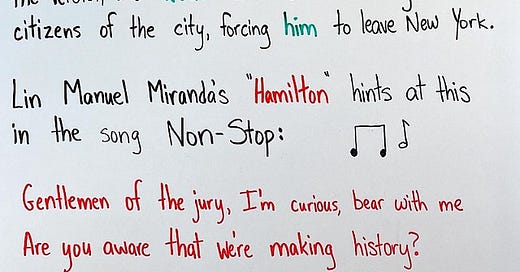 citizens of the city, forcing him to leave New York.
Lin Manuel Miranda's "Hamilton" hints at this
in the song Non-Stop:
Gentlemen of the jury, I'm curious, bear with me
Are you aware that we're making history?